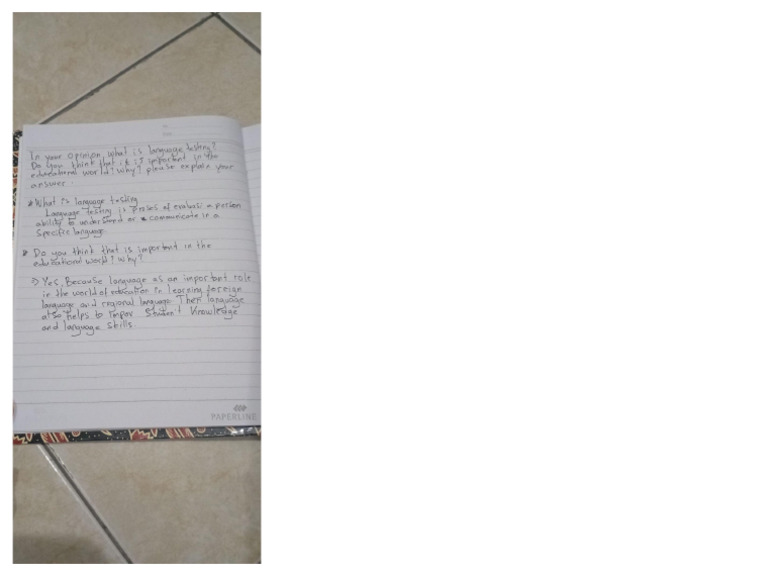 In your opinion, what is language testing?
Do you think that it is important in the
educational world? Why? please explain your
answer.
* What is language testing
Language testing is proses of evaluati a person
ability to understand or communicate in a
specific language.
* Do you think that is important in the
educational world? Why?
=> Yes, Because language as an important role
in the world of education in learning foreign
language and regional language. Then language
also helps to impor student knowledge
and language skills.
PAPERLINE